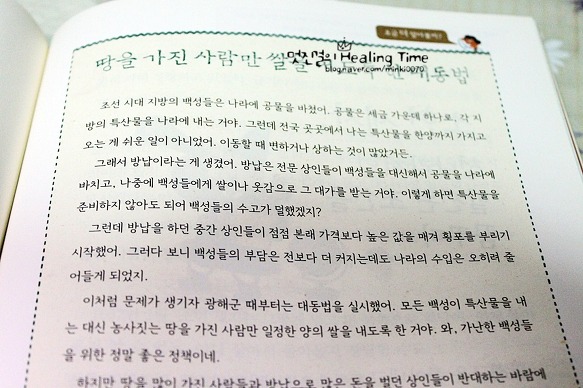 조금 더 알아볼까?
땅을 가진 사람만 쌀을 대동법
멋지검의 Healing Time
blog.naver.com/minki0070
조선 시대 지방의 백성들은 나라에 공물을 바쳤어. 공물은 세금 가운데 하나로, 각 지
방의 특산물을 나라에 내는 거야. 그런데 전국 곳곳에서 나는 특산물을 한양까지 가지고
오는 게 쉬운 일이 아니었어. 이동할 때 변하거나 상하는 것이 많았거든.
그래서 방납이라는 게 생겼어. 방납은 전문 상인들이 백성들을 대신해서 공물을 나라에
바치고, 나중에 백성들에게 쌀이나 옷감으로 그 대가를 받는 거야. 이렇게 하면 특산물을
준비하지 않아도 되어 백성들의 수고가 덜했겠지?
그런데 방납을 하던 중간 상인들이 점점 본래 가격보다 높은 값을 매겨 횡포를 부리기
시작했어. 그러다 보니 백성들의 부담은 전보다 더 커지는데도 나라의 수입은 오히려 줄
어들게 되었지.
이처럼 문제가 생기자 광해군 때부터는 대동법을 실시했어. 모든 백성이 특산물을 내
는 대신 농사짓는 땅을 가진 사람만 일정한 양의 쌀을 내도록 한 거야. 와, 가난한 백성들
을 위한 정말 좋은 정책이네.
하지만 땅을 많이 가진 사람들과 방납으로 많은 돈을 벌던 상인들이 반대하는 바람에